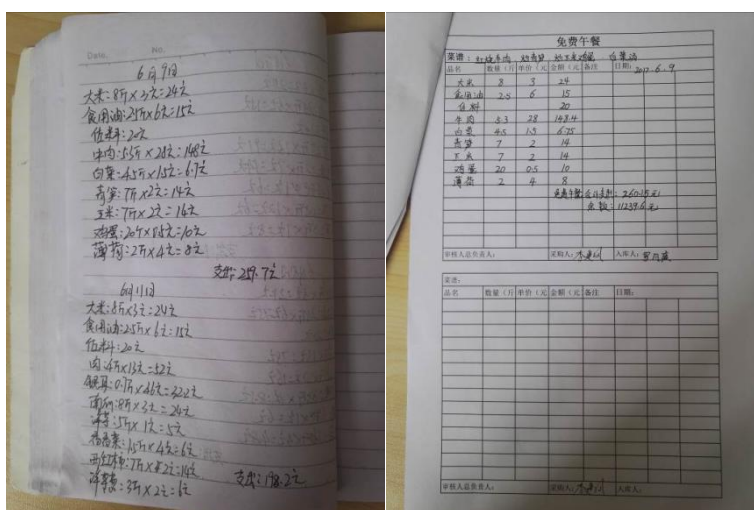 Date. No.
6月9日
大米:8斤×3元=24元
食用油:2.5斤×6元=15元
佐料:20元
牛肉:5.3斤×28元=148元
白菜:4.5斤×1.5元=6.7元
青笋:7斤×2元=14元
玉米:7斤×2元=16元
鸡蛋:20个×0.5元=10元
薄荷:2斤×4元=8元
支出:259.7元
6月11日
大米:8斤×3元=24元
食用油:2.5斤×6元=15元
佐料:20元
肉:4斤×13元=52元
银耳:0.7斤×46元=32.2元
面粉:8斤×3元=24元
洋芋:5斤×1元=5元
1.5斤×4元=6元
西红柿:7斤×2元=14元
3斤×2元=6元
支出:198.2元
免费午餐
菜谱: 红烧牛肉 炒青笋 炒玉米鸡蛋 白菜汤
品名 数量(斤 单价(元 金额(元 备注 日期: 2017.6.9
大米 8 3 24
食用油 2.5 6 15
佐料 20
牛肉 5.3 28 148.4
白菜 4.5 1.5 6.75
青笋 7 2 14
玉米 7 2 14
鸡蛋 20 0.5 10
薄荷 2 4 8
免费午餐合计支出: 260.15元
余款: 11239.6元
审核人总负责人: 采购人: 入库人:
菜谱:
品名 数量(斤 单价(元 金额(元 备注 日期:
审核人总负责人: 采购人: 入库人: